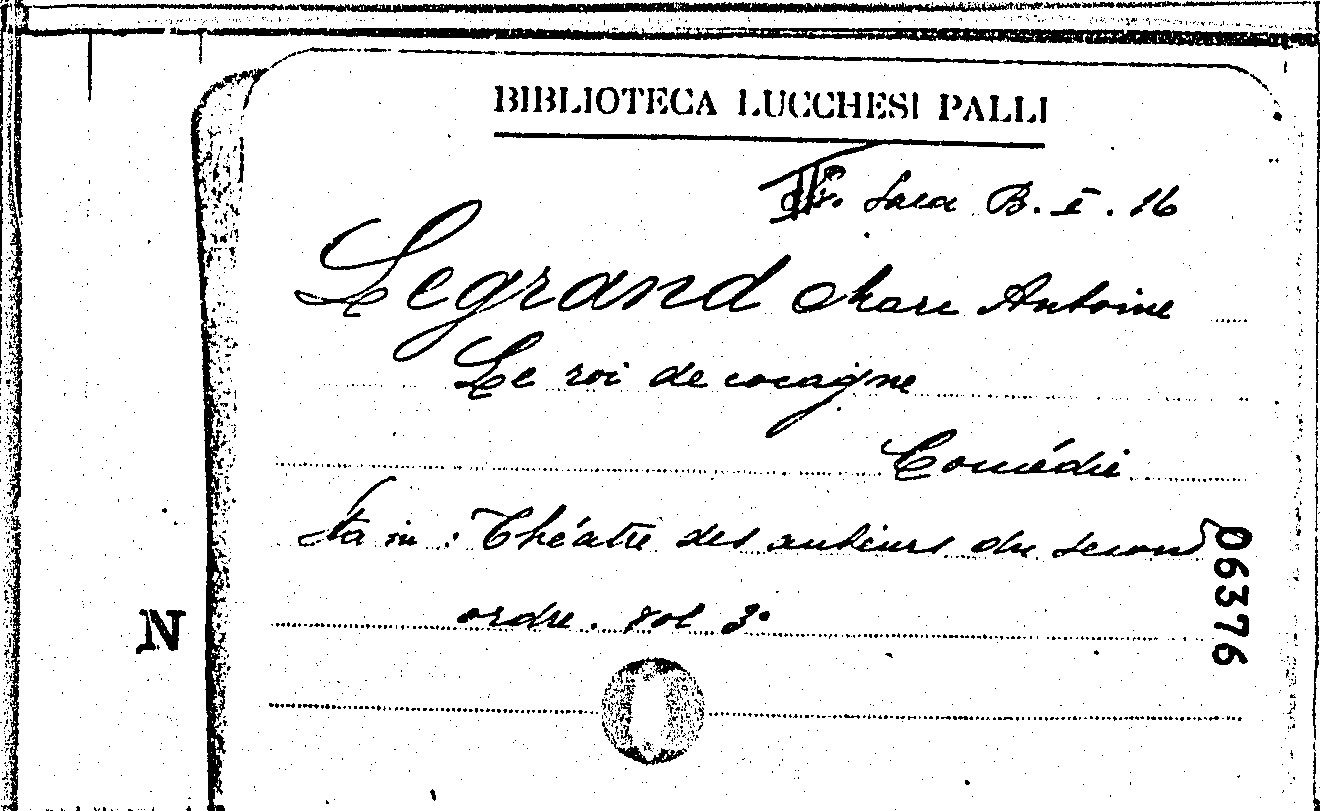 BIBLIOTECA LUCCHESI PALLI
Sala B. I. 16
Legrand Marc Antoine
Le roi de cocagne
Comédie
Sta in : Théatre des auteurs du second
ordre. vol 3º
06376
N